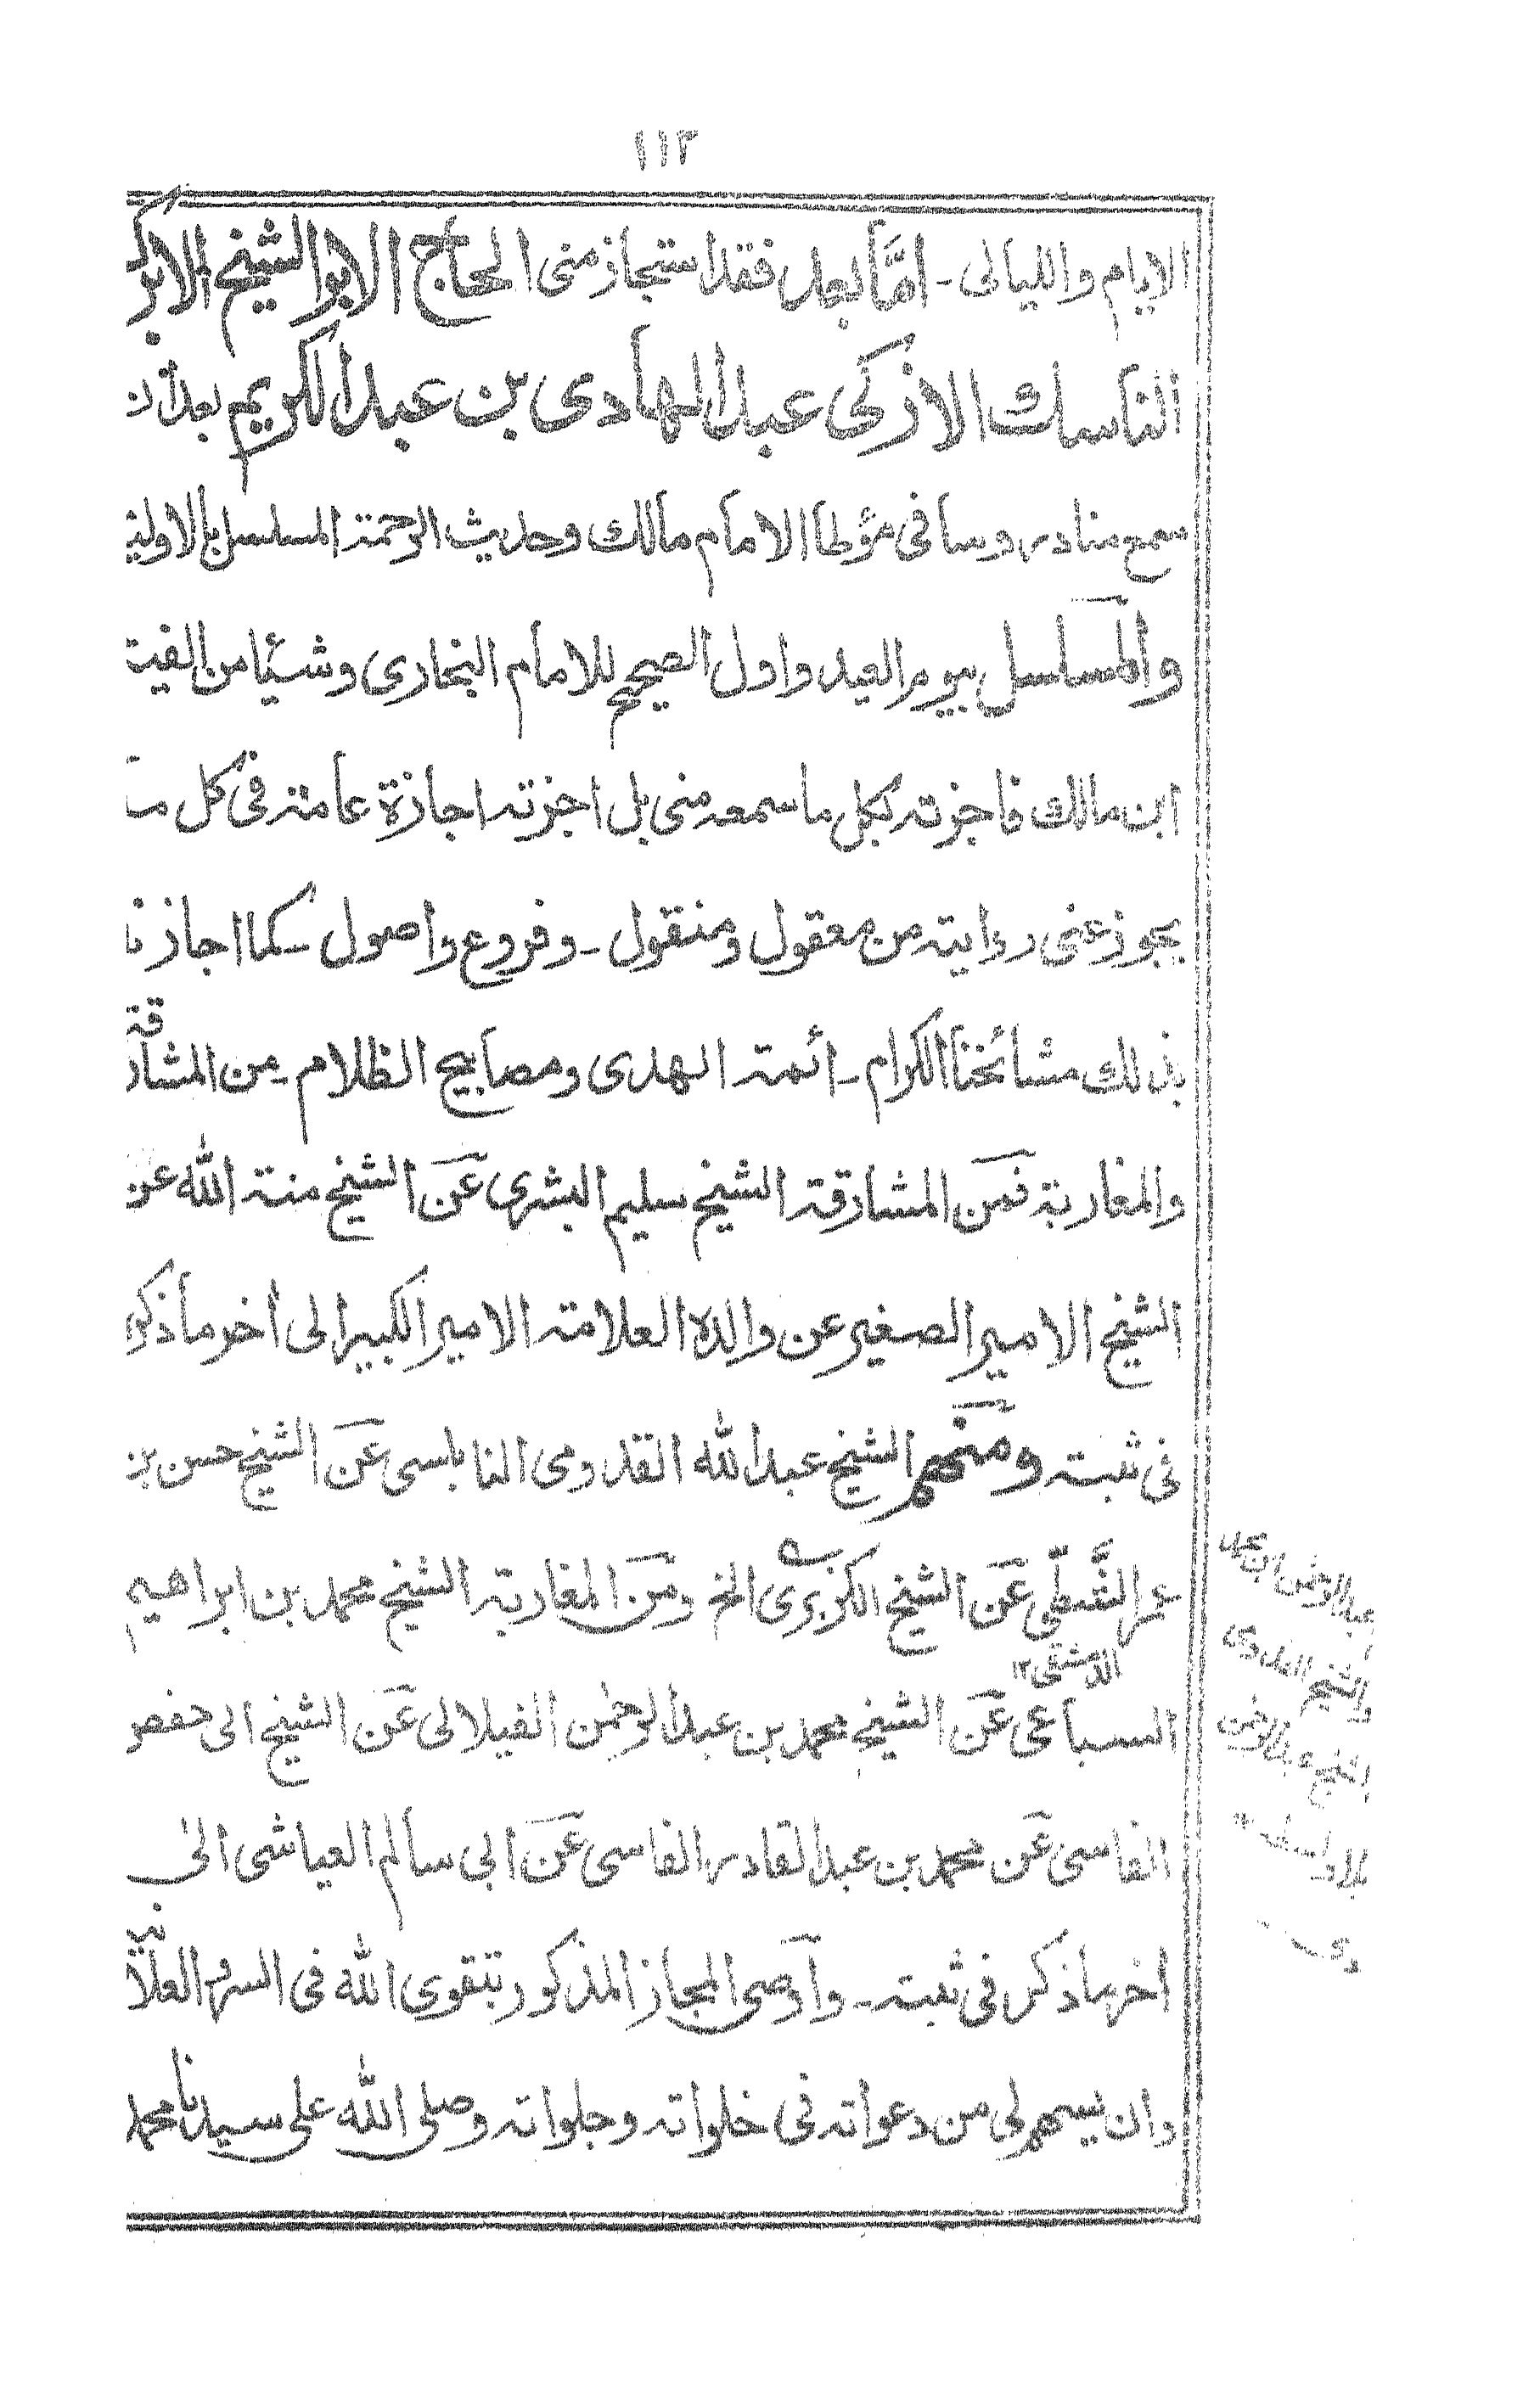 ١١٣
الايام والليالى - امَّا بعد فقد استجاز منى الحاج الابو الشيخ الابرك
الناسك الازكى عبد الهادى بن عبد الكريم بعد ان
سمع منا دروسا فى مؤطا الامام مالك وحديث الرحمة المسلسل بالاولية
والمسلسل بيوم العيد واول الصحيح للامام البخارى وشيئا من الفية
ابن مالك فاجزته بكل ما سمعه منى بل اجزته اجازة عامة فى كل ما
يجوز عنى روايته من معقول ومنقول - وفروع واصول - كما اجازنا
بذلك مشائخنا الكرام - ائمة الهدى ومصابيح الظلام - من المشارقة
والمغاربة فمن المشارقة الشيخ سليم البشرى عن الشيخ منة الله عن
الشيخ الامير الصغير عن والده العلامة الامير الكبير الى اخر ما ذكر
فى ثبته ومنهم الشيخ عبد الله القدومى النابلسى عن الشيخ حسن بن
عمر الشَّطّى عن الشيخ الكزبرى الخ ومن المغاربة الشيخ محمد بن ابراهيم
الدمشقى ١٢
السباعى عن الشيخ محمد بن عبد الرحمن الفيلالى عن الشيخ ابى حفص
الفاسى عن محمد بن عبد القادر الفاسى عن ابى سالم العياشى الى
اخر ما ذكر فى ثبته - واوصى المجاز المذكور بتقوى الله فى السر والعلانية
وان يسهم لى من دعواته فى خلواته وجلواته وصلى الله على سيدنا محمد
عبد الرحمن ابن محمد
والشيخ القدومى
الشيخ عبد الرحمن
بلا واسطة